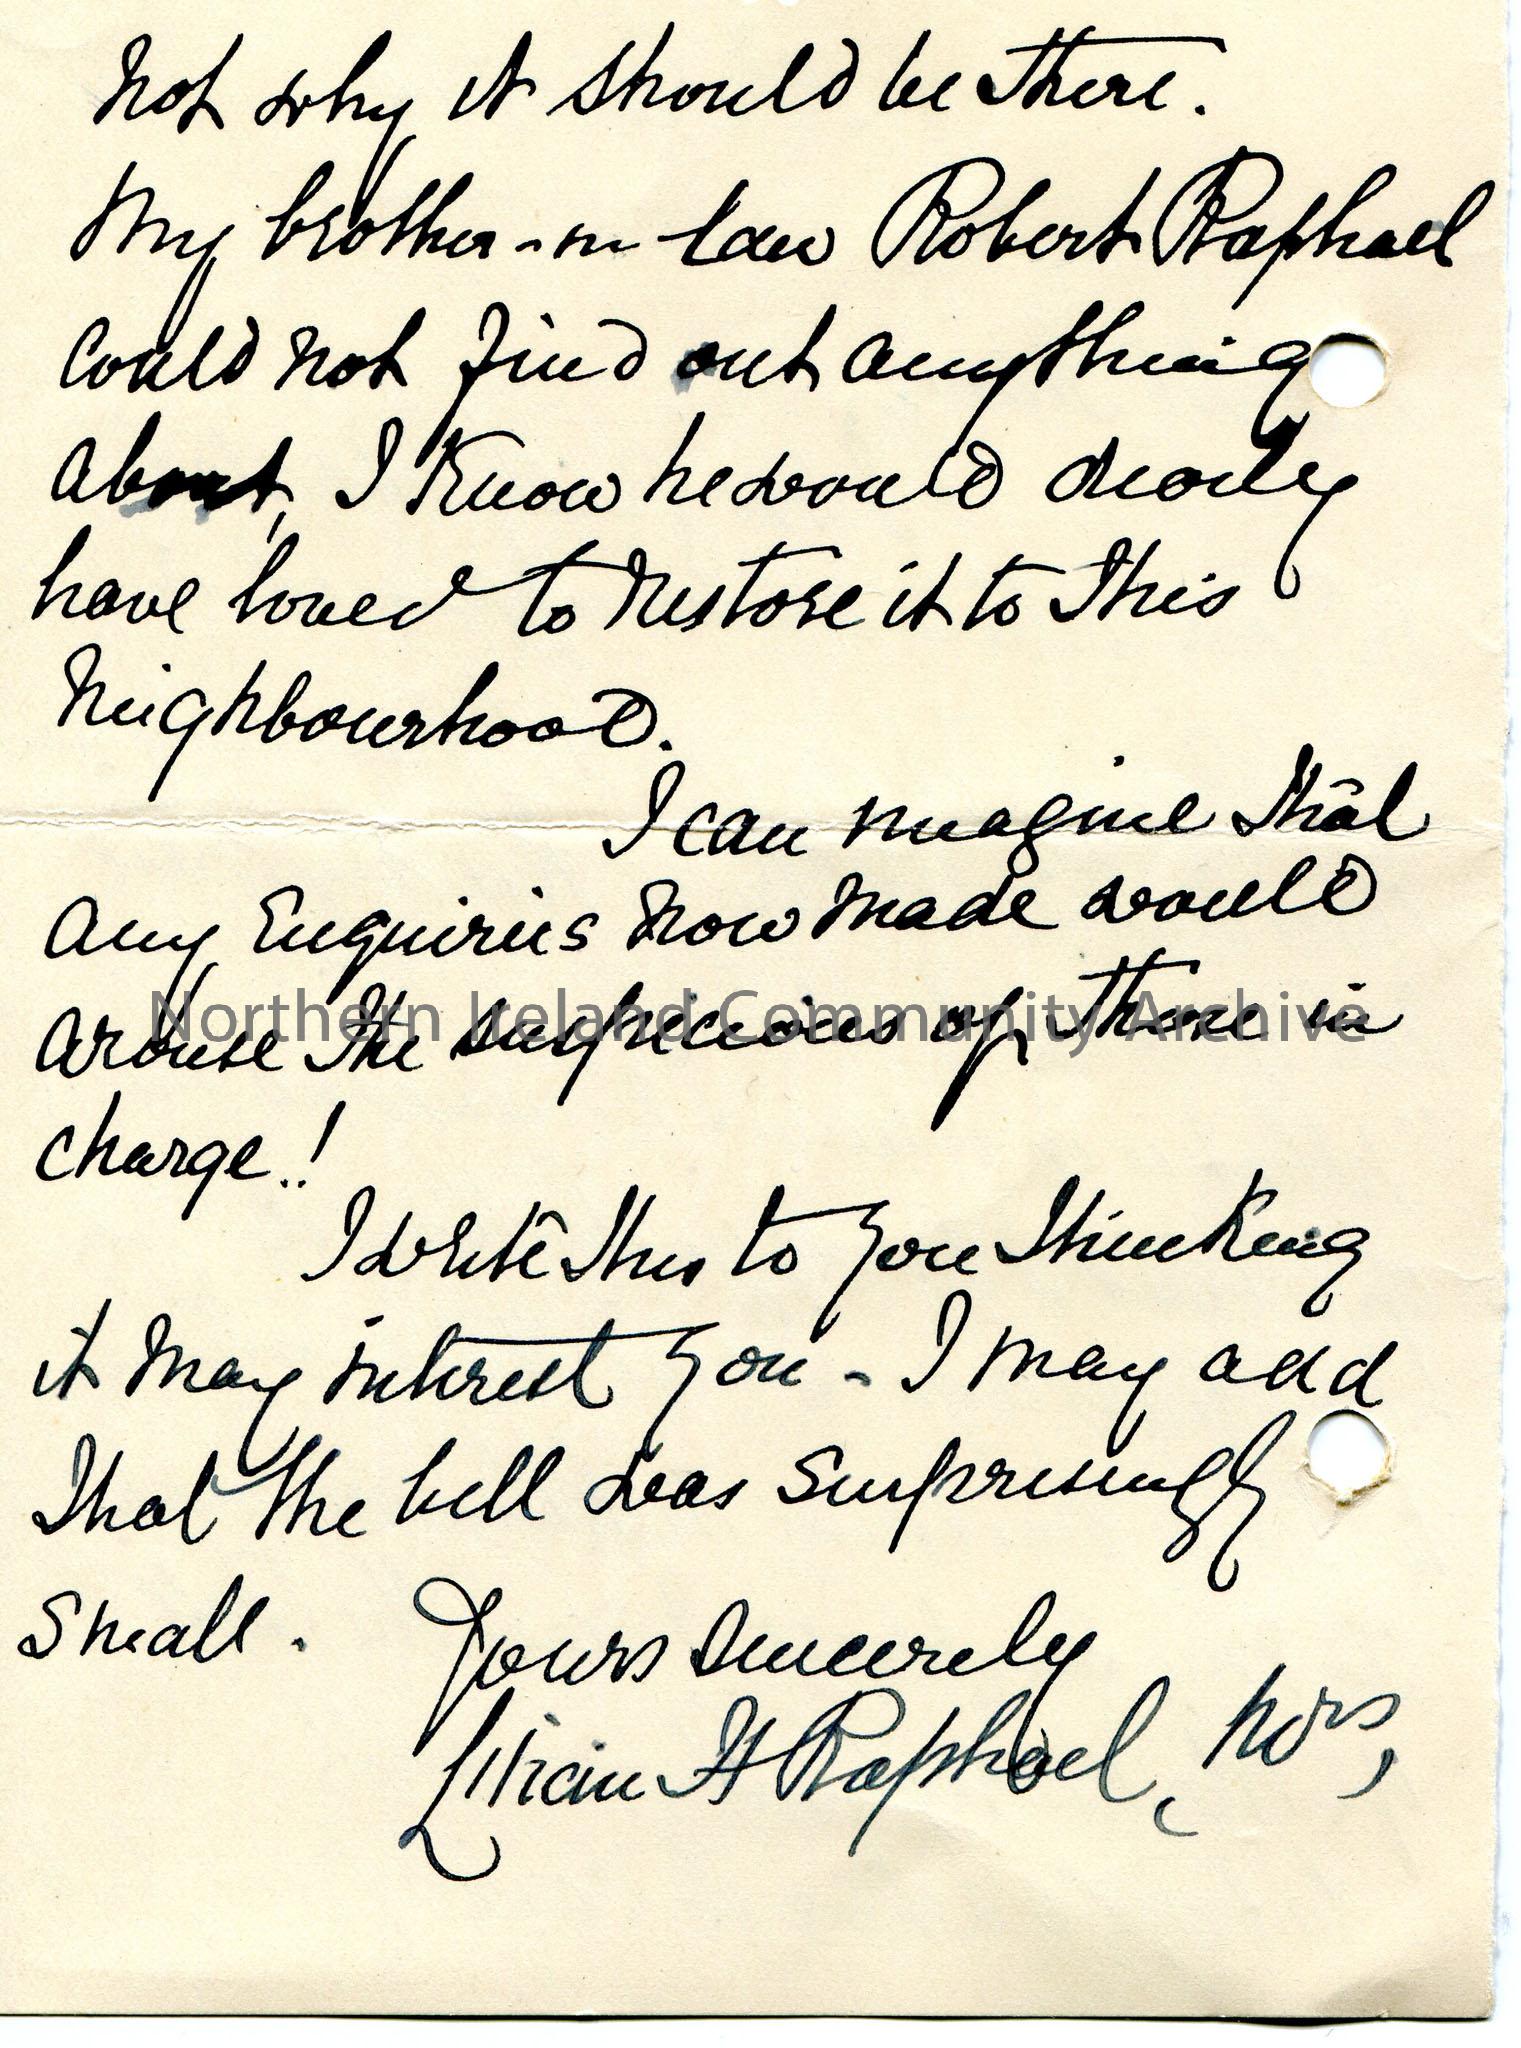 not why it should be there.
My brother-in-law Robert Raphael
could not find out anything
about, I know he would dearly
have loved to restore it to this
neighbourhood.
I can imagine that
any Enquiries now made would
arouse the suspicions of those in
Northern Ireland Community Archive
charge..!
I write this to you thinking
it may interest you - I may add
that the bell was surprisingly
small.
Yours sincerely
Lilian H Raphael, Mrs,